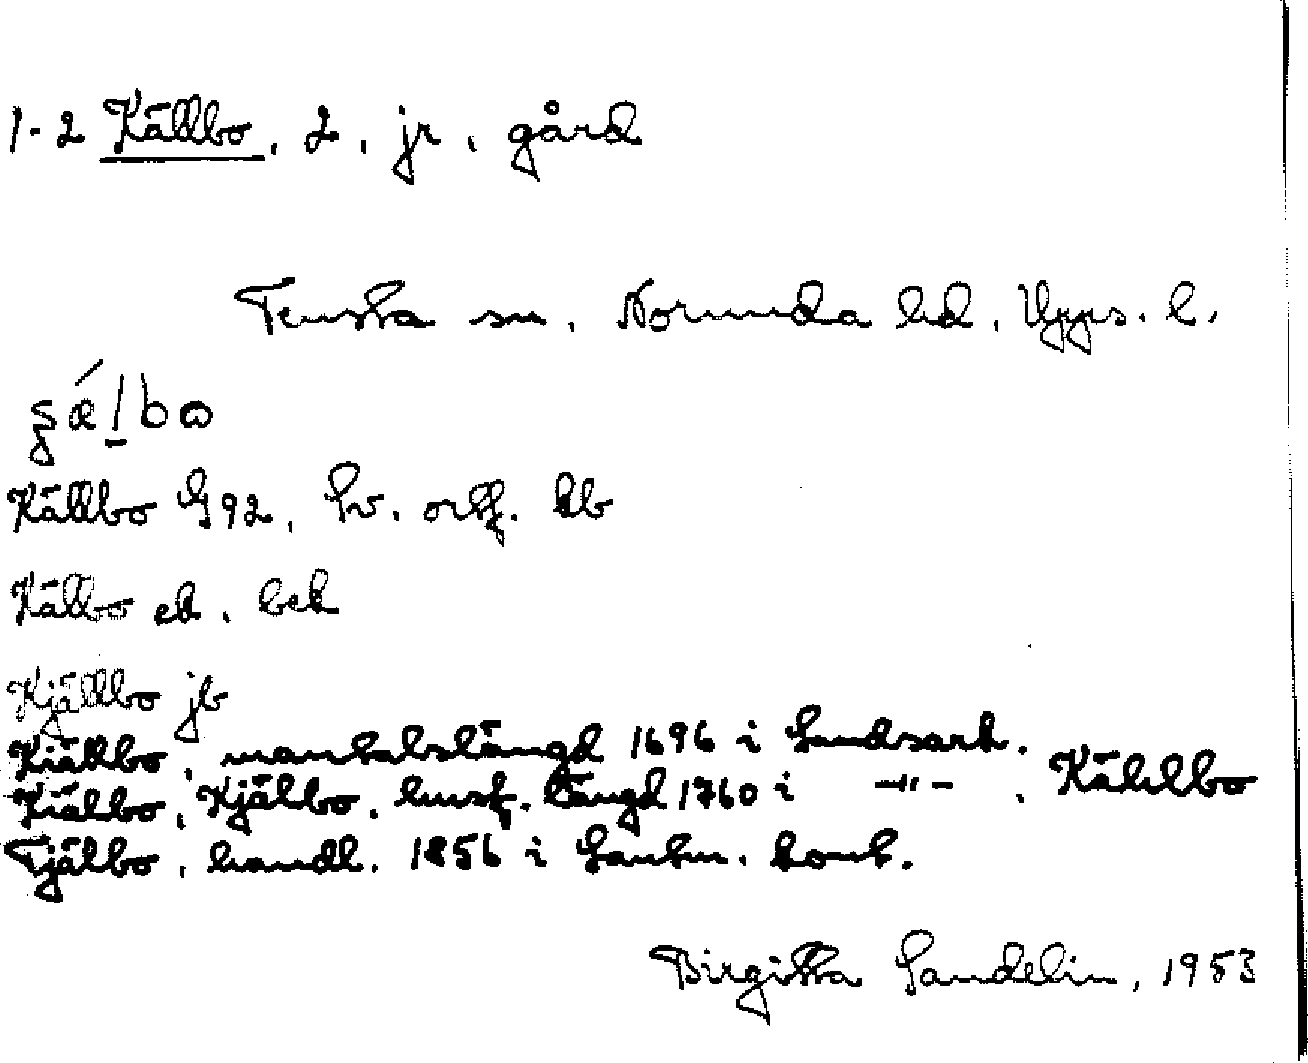 1-2 Källbo, 2, jr, gård
Tensta sn, Norunda hd, Upps. l.
Källbo G92, Sv. ortf. kb
Källbo ek, bek
Kjällbo jb
Kiällbo, mantalslängd 1696 i Landsark.
Kiälbo, Kjälbo, husf. längd 1760 i —"— , Kählbo
Tjälbo, handl. 1856 i Lantm. kont.
Birgitta Sandelin, 1953